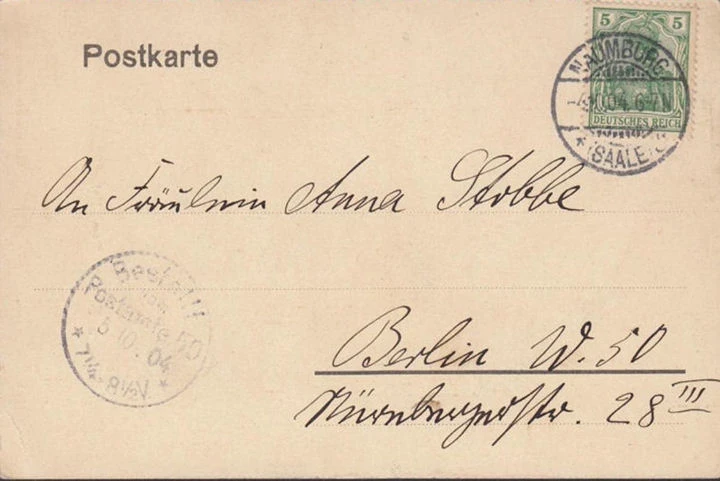 Postkarte
5 5
DEUTSCHES REICH
NAUMBURG
10.04. 6-7N
* (SAALE)
An Fräulein Anna Stobbe
Bestellt
vom
Postamte 50
5.10.04
* 7¼-8½V. *
Berlin W. 50
Nürnbergerstr. 28 III